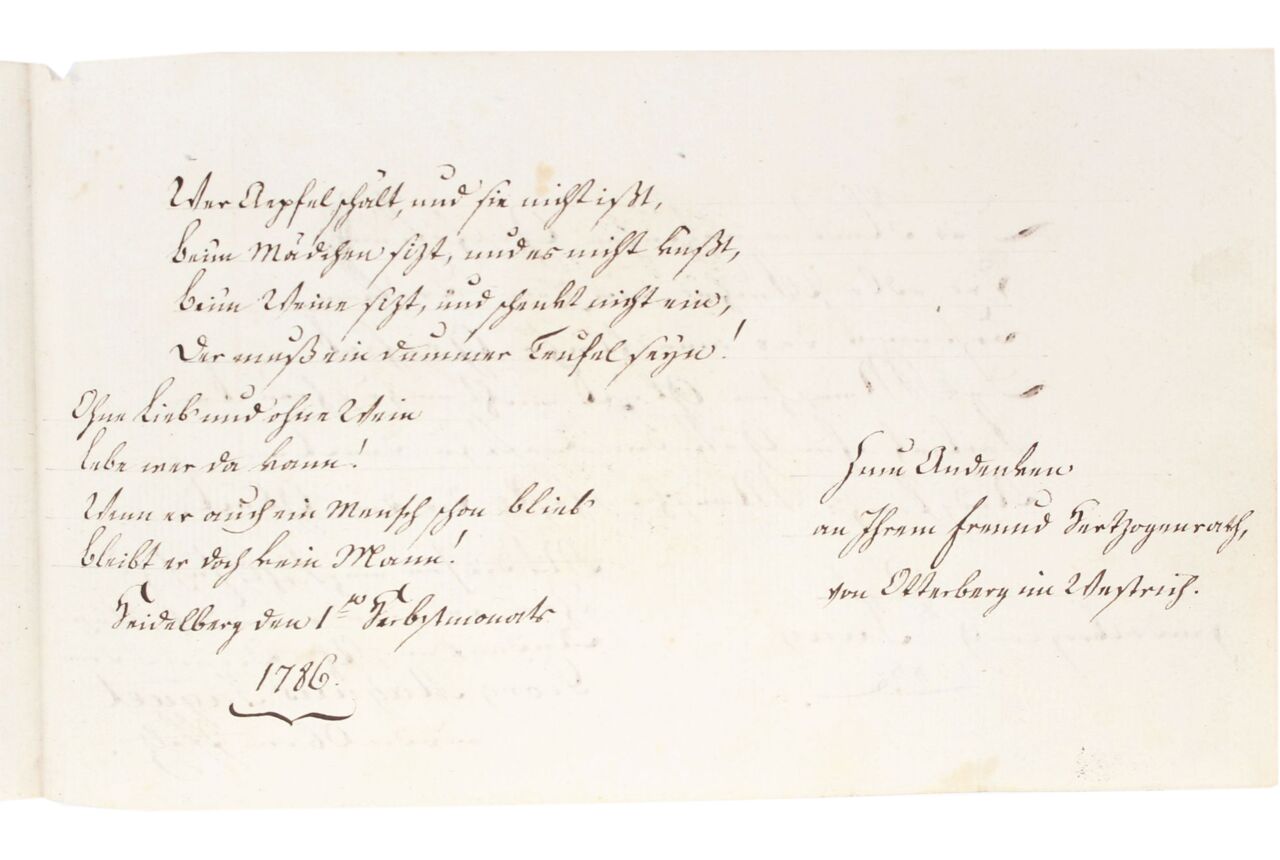 Wer Aepfel schält, und sie nicht ißt,
beim Mädchen sizt, und es nicht küßt,
beim Weine sizt, und schenkt nicht ein,
Der muß ein dummer Teufel seyn!
Ohne Lieb und ohne Wein
lebe wer da kann!
Wenn er auch ein Mensch schon blieb
bleibt er doch kein Mann!
Heidelberg den 1ten Herbstmonats
1786.
Zum Andenken
an Ihrem freund Hertzogenrath,
von Otterberg im Westrich.